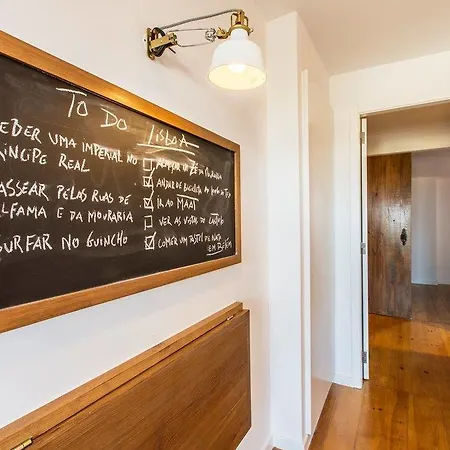 TO DO LISBOA
EBER UMA IMPERIAL NO
RÍNCIPE REAL
ASSEAR PELAS RUAS DE
LFAMA E DA MOURARIA
SURFAR NO GUINCHO
ZÉ DA MOURARIA
ANDAR DE BICICLETA
IR AO MAAT
VER AS VISTAS DO CASTELO
COMER UM PASTEL DE NATA
EM BELÉM